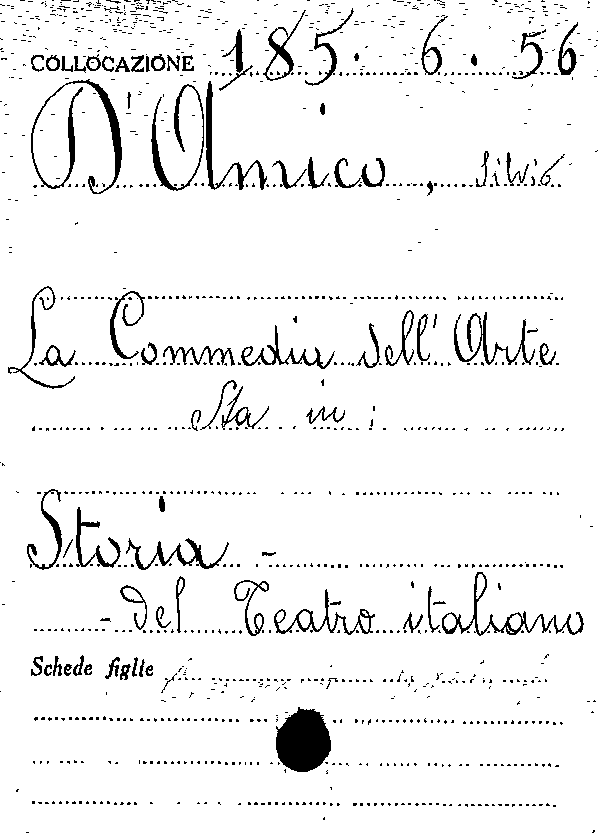 COLLOCAZIONE 185. 6. 56
D'Amico, Silvio
La Commedia dell'Arte
Sta in:
Storia -
- del Teatro italiano
Schede figlie